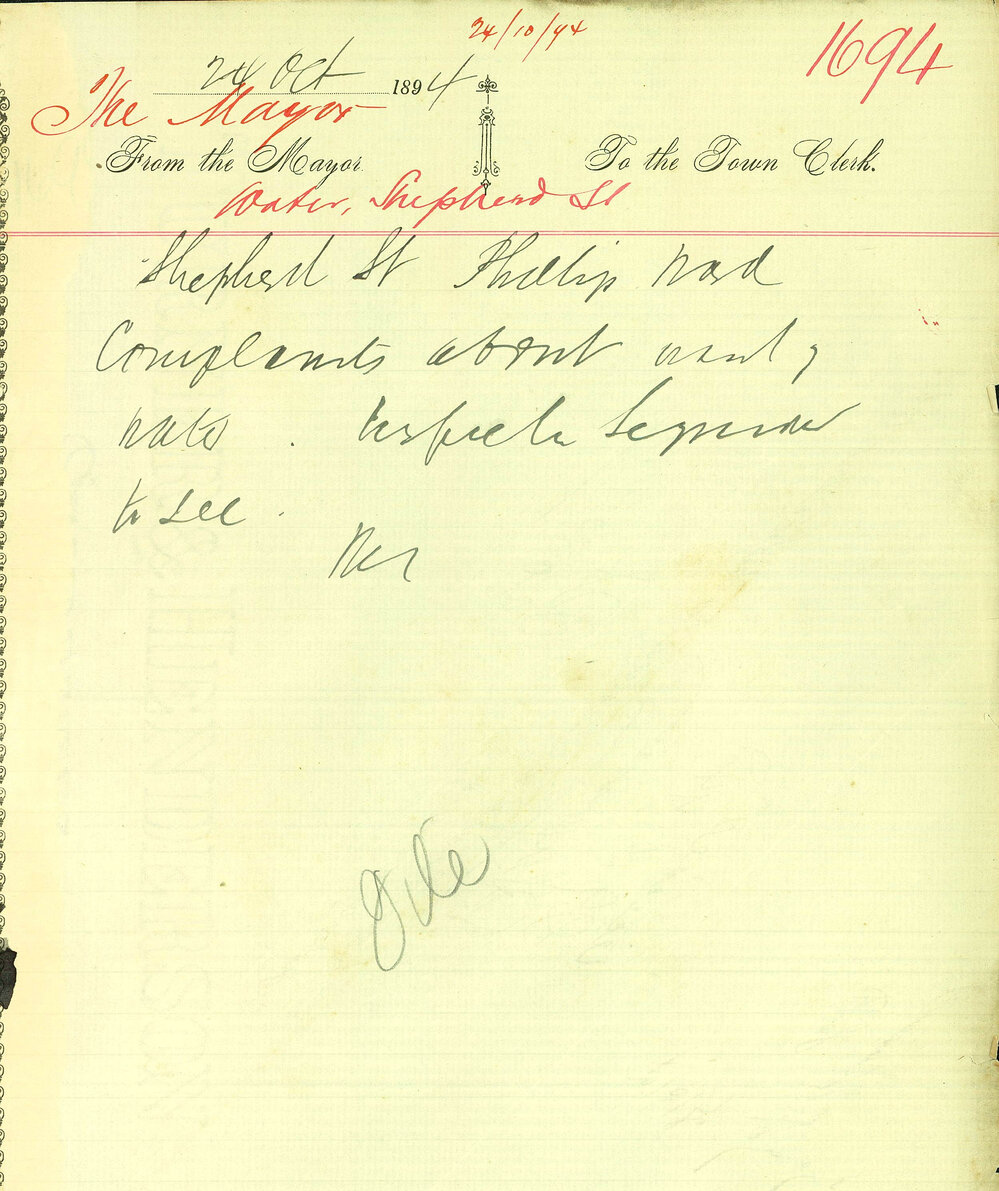 24/10/94
1694
24 Oct 1894
The Mayor
From the Mayor. To the Town Clerk.
Water, Shepherd St
Shepherd St Phillip Ward
Complaints about want of
water. Inspector Seymour
to see.
File